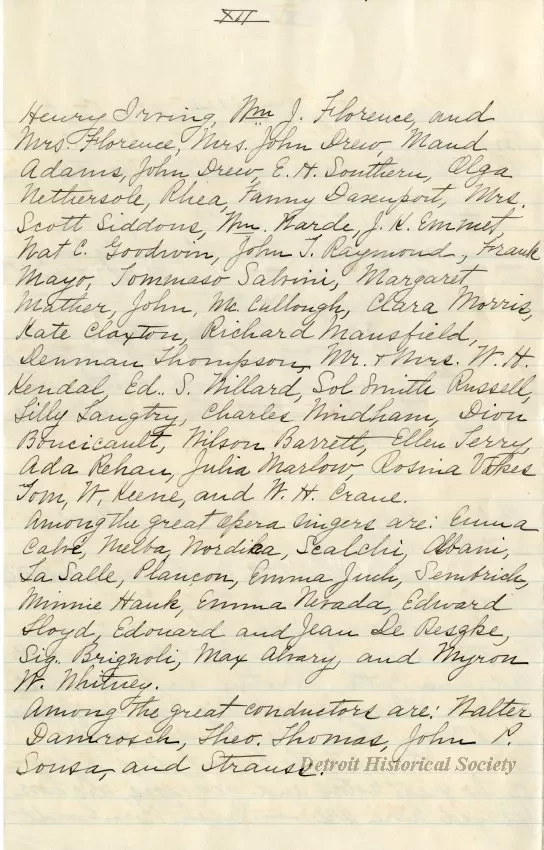 XII
Henry Irving, Wm J. Florence, and
Mrs. Florence, Mrs. John Drew, Maud
Adams, John Drew, E. H. Southern, Olga
Nethersole, Rhea, Fanny Davenport, Mrs.
Scott Siddons, Wm. Warde, J. K. Emmet,
Nat C. Goodwin, John T. Raymond, Frank
Mayo, Tommaso Salvini, Margaret
Mather, John, Mc Cullough, Clara Morris,
Kate Claxton, Richard Mansfield,
Denman Thompson, Mr. & Mrs. W. H.
Kendal, Ed. S. Willard, Sol Smith Russell,
Lilly Langtry, Charles Windham, Dion
Boucicault, Wilson Barrett, Ellen Terry,
Ada Rehan, Julia Marlow, Rosina Vokes
Tom, W. Keene, and W. H. Crane.
Among the great opera singers are: Emma
Calvé, Melba, Nordica, Scalchi, Albani,
La Salle, Plancon, Emma Juch, Sembrich,
Minnie Hauk, Emma Nevada, Edward
Lloyd, Edouard and Jean De Reszke,
Sig. Brignoli, Max Alvary, and Myron
W. Whitney.
Among the great conductors are: Walter
Damrosch, Theo. Thomas, John P.
Sousa, and Strauss.
Detroit Historical Society